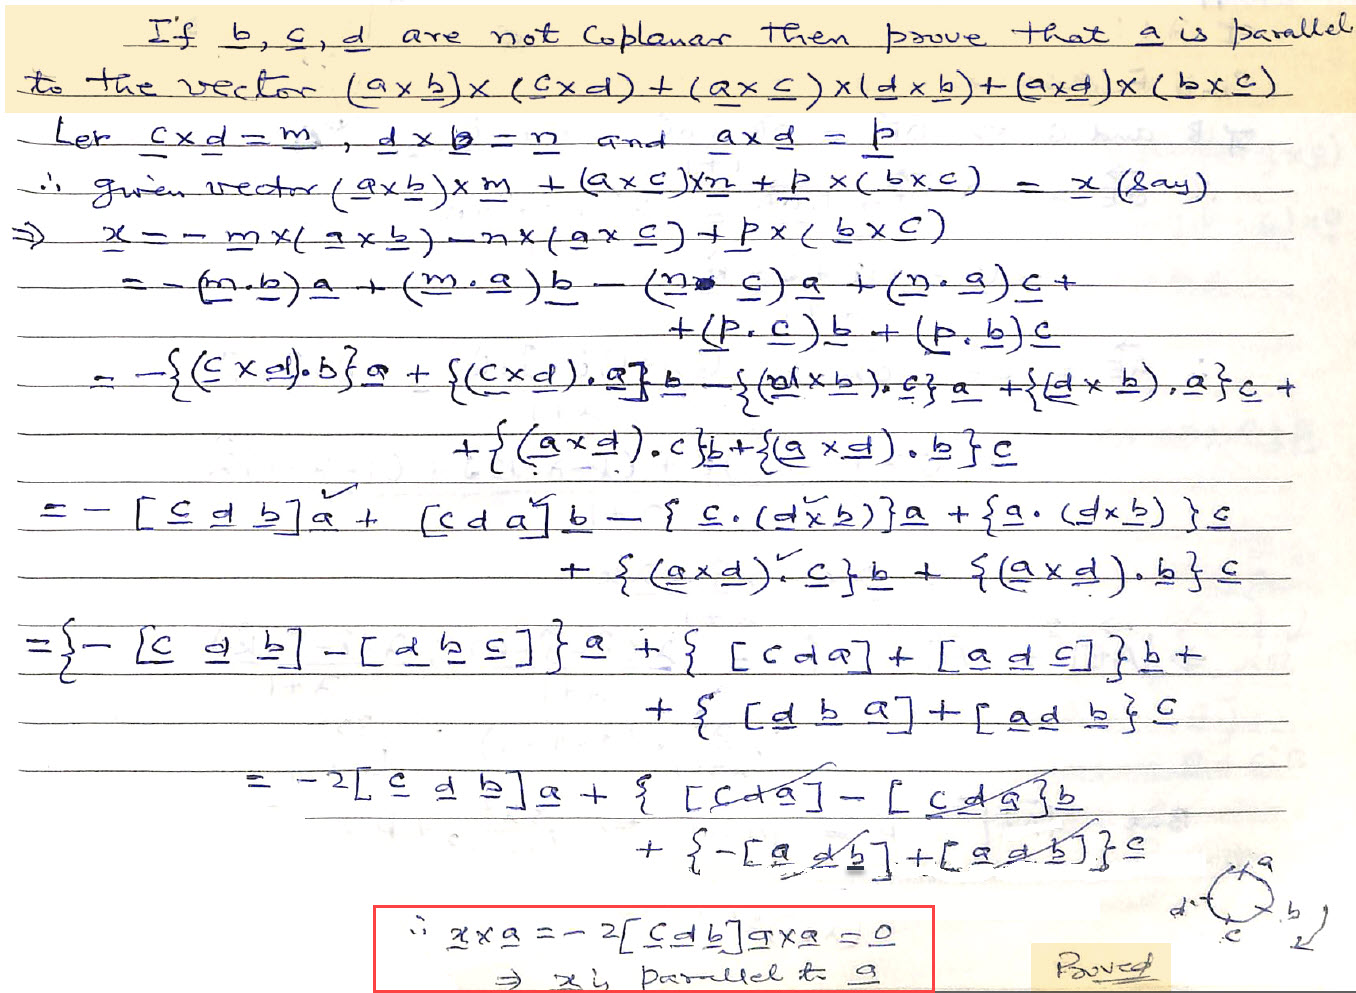 If b, c, d are not coplanar then prove that a is parallel
to the vector (a×b)×(c×d)+(a×c)×(d×b)+(a×d)×(b×c)
Let c×d=m, d×b=n and a×d=p
∴ given vector (a×b)×m+(a×c)×n+p×(b×c) = x (say)
⇒ x=-m×(a×b)-n×(a×c)+p×(b×c)
=-(m.b)a+(m.a)b-(n.c)a+(n.a)c+
+(p.c)b+(p.b)c
=-{(c×d).b}a+{(c×d).a}b-{(d×b).c}a+{(d×b).a}c+
+{(a×d).c}b+{(a×d).b}c
=-[c d b]a+[c d a]b-{c.(d×b)}a+{a.(d×b)}c
+{(a×d).c}b+{(a×d).b}c
={-[c d b]-[d b c]}a+{[c d a]+[a d c]}b+
+{[d b a]+[a d b}c
=-2[c d b]a+{[c d a]-[c d a}b
+{-[a d b]+[a d b]}c
a
d b
c
∴ x×a=-2[c d b]a×a=0
⇒ x is parallel to a
Proved